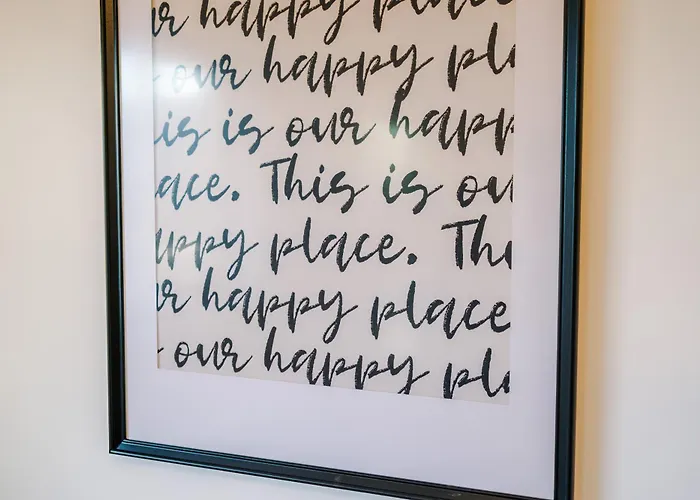 ur happy place
our happy pla
is is our happ
ace. This is ou
appy place. Thi
ur happy place
our happy pla